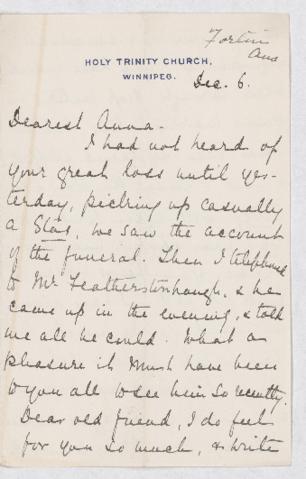 Fortin
Ans
HOLY TRINITY CHURCH,
WINNIPEG.
Dec. 6.
Dearest Anna -
I had not heard of
your great loss until yes-
terday, picking up casually
a Star, we saw the account
of the funeral. Then I telephoned
to Mr Featherstonhaugh, & he
came up in the evening, & told
me all he could. What a
pleasure it must have been
to you all to see him so recently.
Dear old friend, I do feel
for you so much, & write